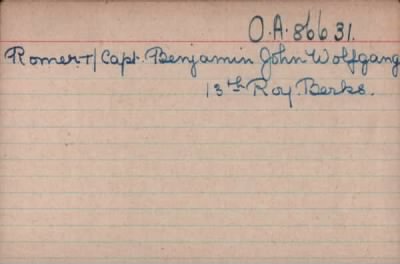 O.A. 86631.
Romer T/Capt. Benjamin John Wolfgang
13th Roy. Berks.